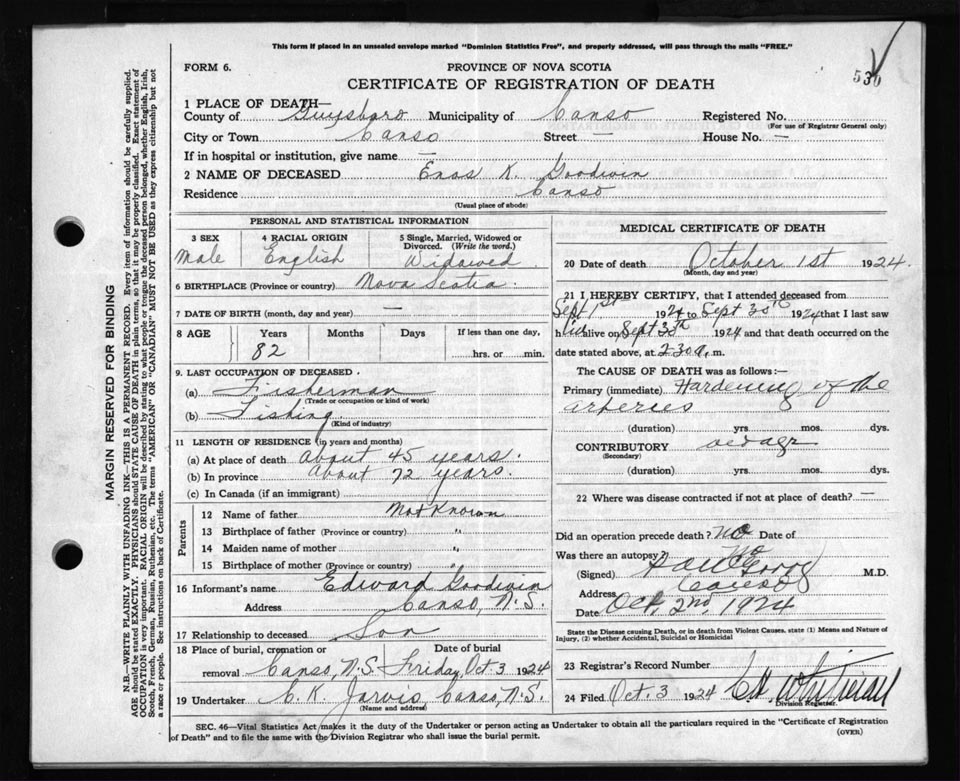 This form if placed in an unsealed envelope marked "Dominion Statistics Free", and properly addressed, will pass through the mails "FREE."
FORM 6.
PROVINCE OF NOVA SCOTIA
530
CERTIFICATE OF REGISTRATION OF DEATH
1 PLACE OF DEATH—
County of Guysboro Municipality of Canso Registered No.
(For use of Registrar General only)
City or Town Canso Street — House No. —
If in hospital or institution, give name —
2 NAME OF DECEASED Enos K. Goodwin
Residence Canso
(Usual place of abode)
PERSONAL AND STATISTICAL INFORMATION
3 SEX
Male
4 RACIAL ORIGIN
English
5 Single, Married, Widowed or
Divorced. (Write the word.)
Widowed
6 BIRTHPLACE (Province or country) Nova Scotia.
7 DATE OF BIRTH (month, day and year) —
8 AGE Years Months Days If less than one day,
82 hrs. or min.
9. LAST OCCUPATION OF DECEASED.
(a) Fisherman
(Trade or occupation or kind of work)
(b) Fishing
(Kind of industry)
11 LENGTH OF RESIDENCE (in years and months)
(a) At place of death about 45 years.
(b) In province About 72 years.
(c) In Canada (if an immigrant)
Parents
12 Name of father Not Known
13 Birthplace of father (Province or country) "
14 Maiden name of mother "
15 Birthplace of mother (Province or country) "
16 Informant's name Edward Goodwin
Address Canso, N.S.
17 Relationship to deceased Son
18 Place of burial, cremation or Date of burial
removal Canso, N.S. Friday Oct. 3 1924
19 Undertaker C. K. Jarvis Canso, N.S.
(Name and address)
MEDICAL CERTIFICATE OF DEATH
20 Date of death October 1st 1924.
(Month, day and year)
21 I HEREBY CERTIFY, that I attended deceased from
Sept 1st 1924 to Sept 30th 1924 that I last saw
h alive on Sept 30th 1924 and that death occurred on the
date stated above, at 230a. m.
The CAUSE OF DEATH was as follows:—
Primary (immediate) Hardening of the
arteries
(duration) yrs. mos. dys.
CONTRIBUTORY old age
(Secondary)
(duration) yrs. mos. dys.
22 Where was disease contracted if not at place of death? —
Did an operation precede death? No Date of
Was there an autopsy No
(Signed) M.D.
Address Canso
Date Oct. 2nd, 1924
State the Disease causing Death, or in death from Violent Causes, state (1) Means and Nature of
Injury, (2) whether Accidental, Suicidal or Homicidal
23 Registrar's Record Number
24 Filed Oct. 3 1924
Division Registrar.
SEC. 46—Vital Statistics Act makes it the duty of the Undertaker or person acting as Undertaker to obtain all the particulars required in the "Certificate of Registration
of Death" and to file the same with the Division Registrar who shall issue the burial permit.
(OVER)
MARGIN RESERVED FOR BINDING
N.B.—WRITE PLAINLY WITH UNFADING INK—THIS IS A PERMANENT RECORD. Every item of information should be carefully supplied.
AGE should be stated EXACTLY. PHYSICIANS should STATE CAUSE OF DEATH in plain terms, so that it may be properly classified. Exact statement of
OCCUPATION is very important. RACIAL ORIGIN will be described by stating to what people or tongue the deceased person belonged, whether English, Irish,
Scotch, French, German, Russian, Ruthenian, etc. The terms "AMERICAN" OR "CANADIAN" MUST NOT BE USED as they express citizenship but not
a race or people. See instructions on back of Certificate.